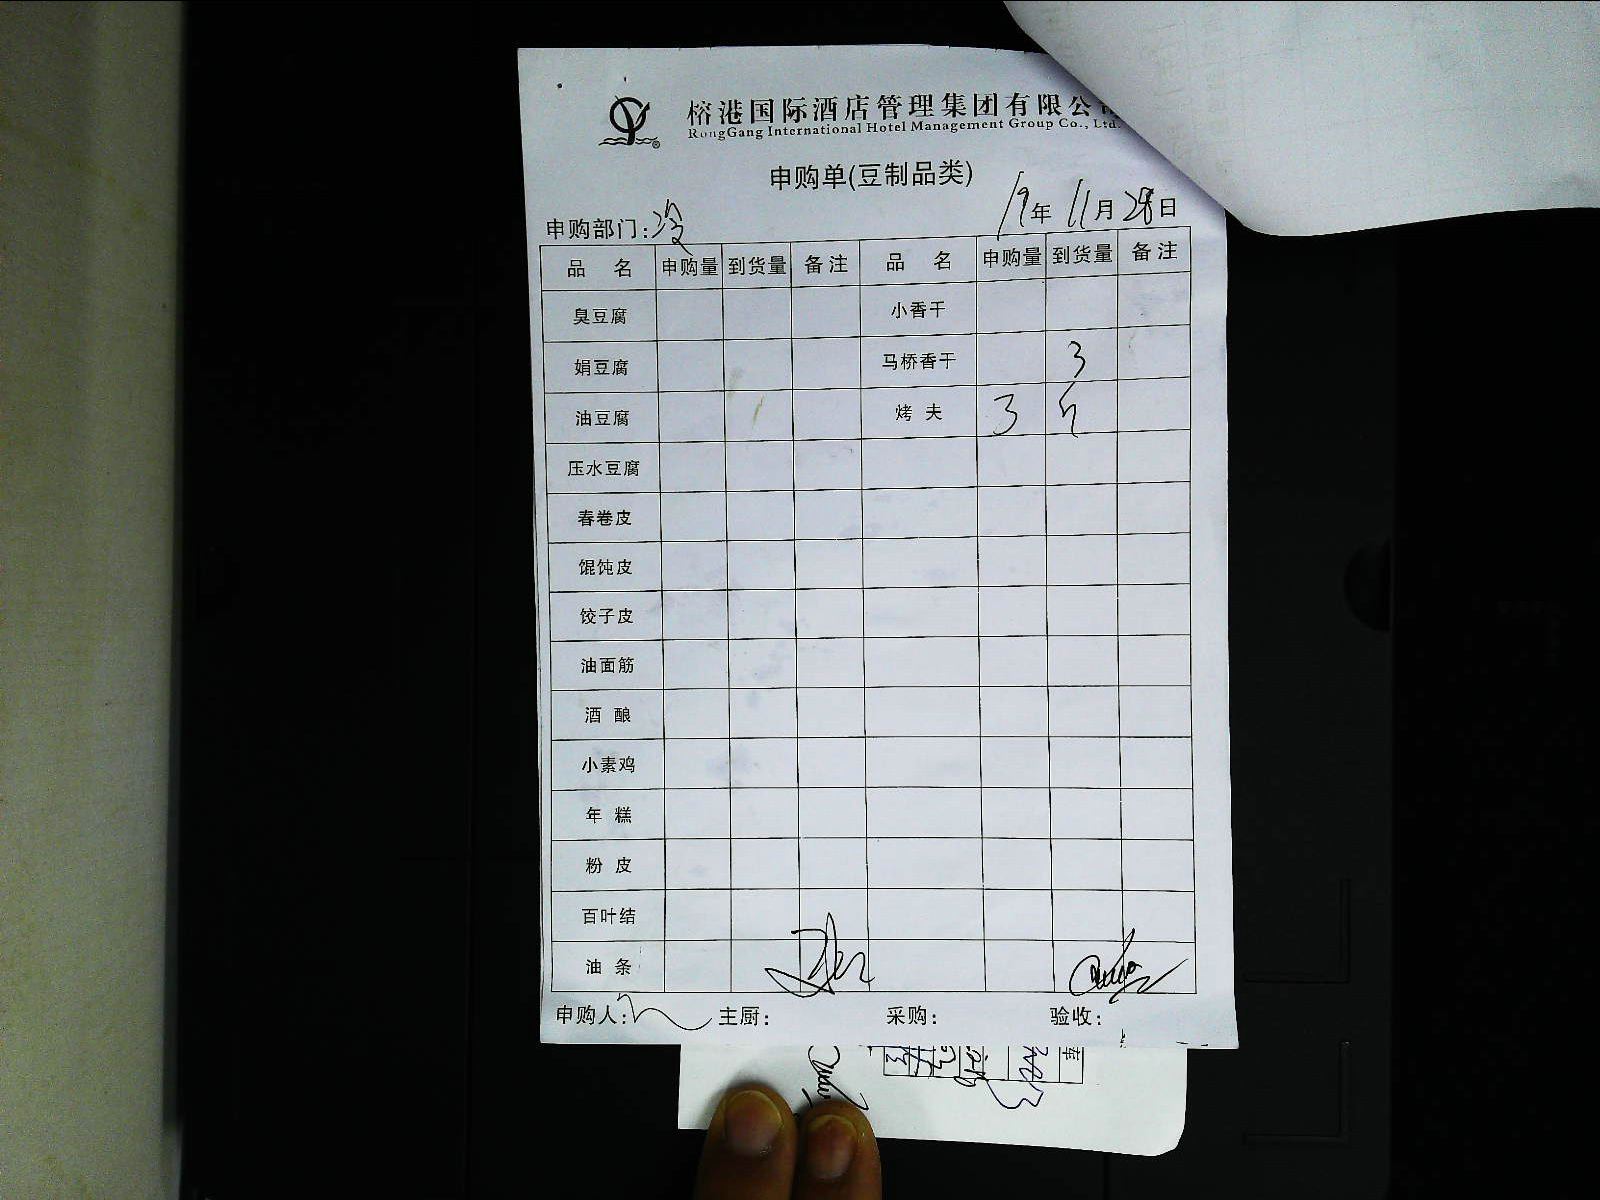 榕港国际酒店管理集团有限公司
RongGang International Hotel Management Group Co., Ltd.
申购单(豆制品类)
19年 11月 28日
申购部门:
品 名 申购量 到货量 备注 品 名 申购量 到货量 备注
臭豆腐 小香干
娟豆腐 马桥香干 3
油豆腐 烤夫 3 斤
压水豆腐
春卷皮
馄饨皮
饺子皮
油面筋
酒酿
小素鸡
年糕
粉皮
百叶结
油条
申购人: 主厨: 采购: 验收: